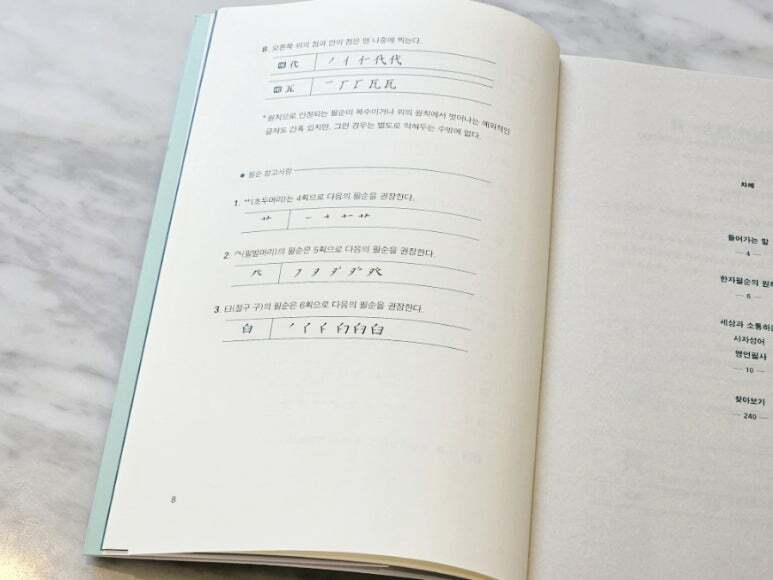 8. 오른쪽 위의 점과 안의 점은 맨 나중에 찍는다.
예 代 ノ 亻 仁 代 代
예 瓦
* 원칙으로 인정되는 필순이 복수이거나 위의 원칙에서 벗어나는 예외적인
글자도 간혹 있지만, 그런 경우는 별도로 익혀두는 수밖에 없다.
● 필순 참고사항
1. 艹(초두머리)는 4획으로 다음의 필순을 권장한다.
2. 癶(필발머리)의 필순은 5획으로 다음의 필순을 권장한다.
癶
3. 臼(절구 구)의 필순은 6획으로 다음의 필순을 권장한다.
臼
8
차례
들어가는 말
— 4 —
한자필순의 원
— 6 —
세상과 소통하
사자성어
명언필사
— 10 —
찾아보기
— 240 —